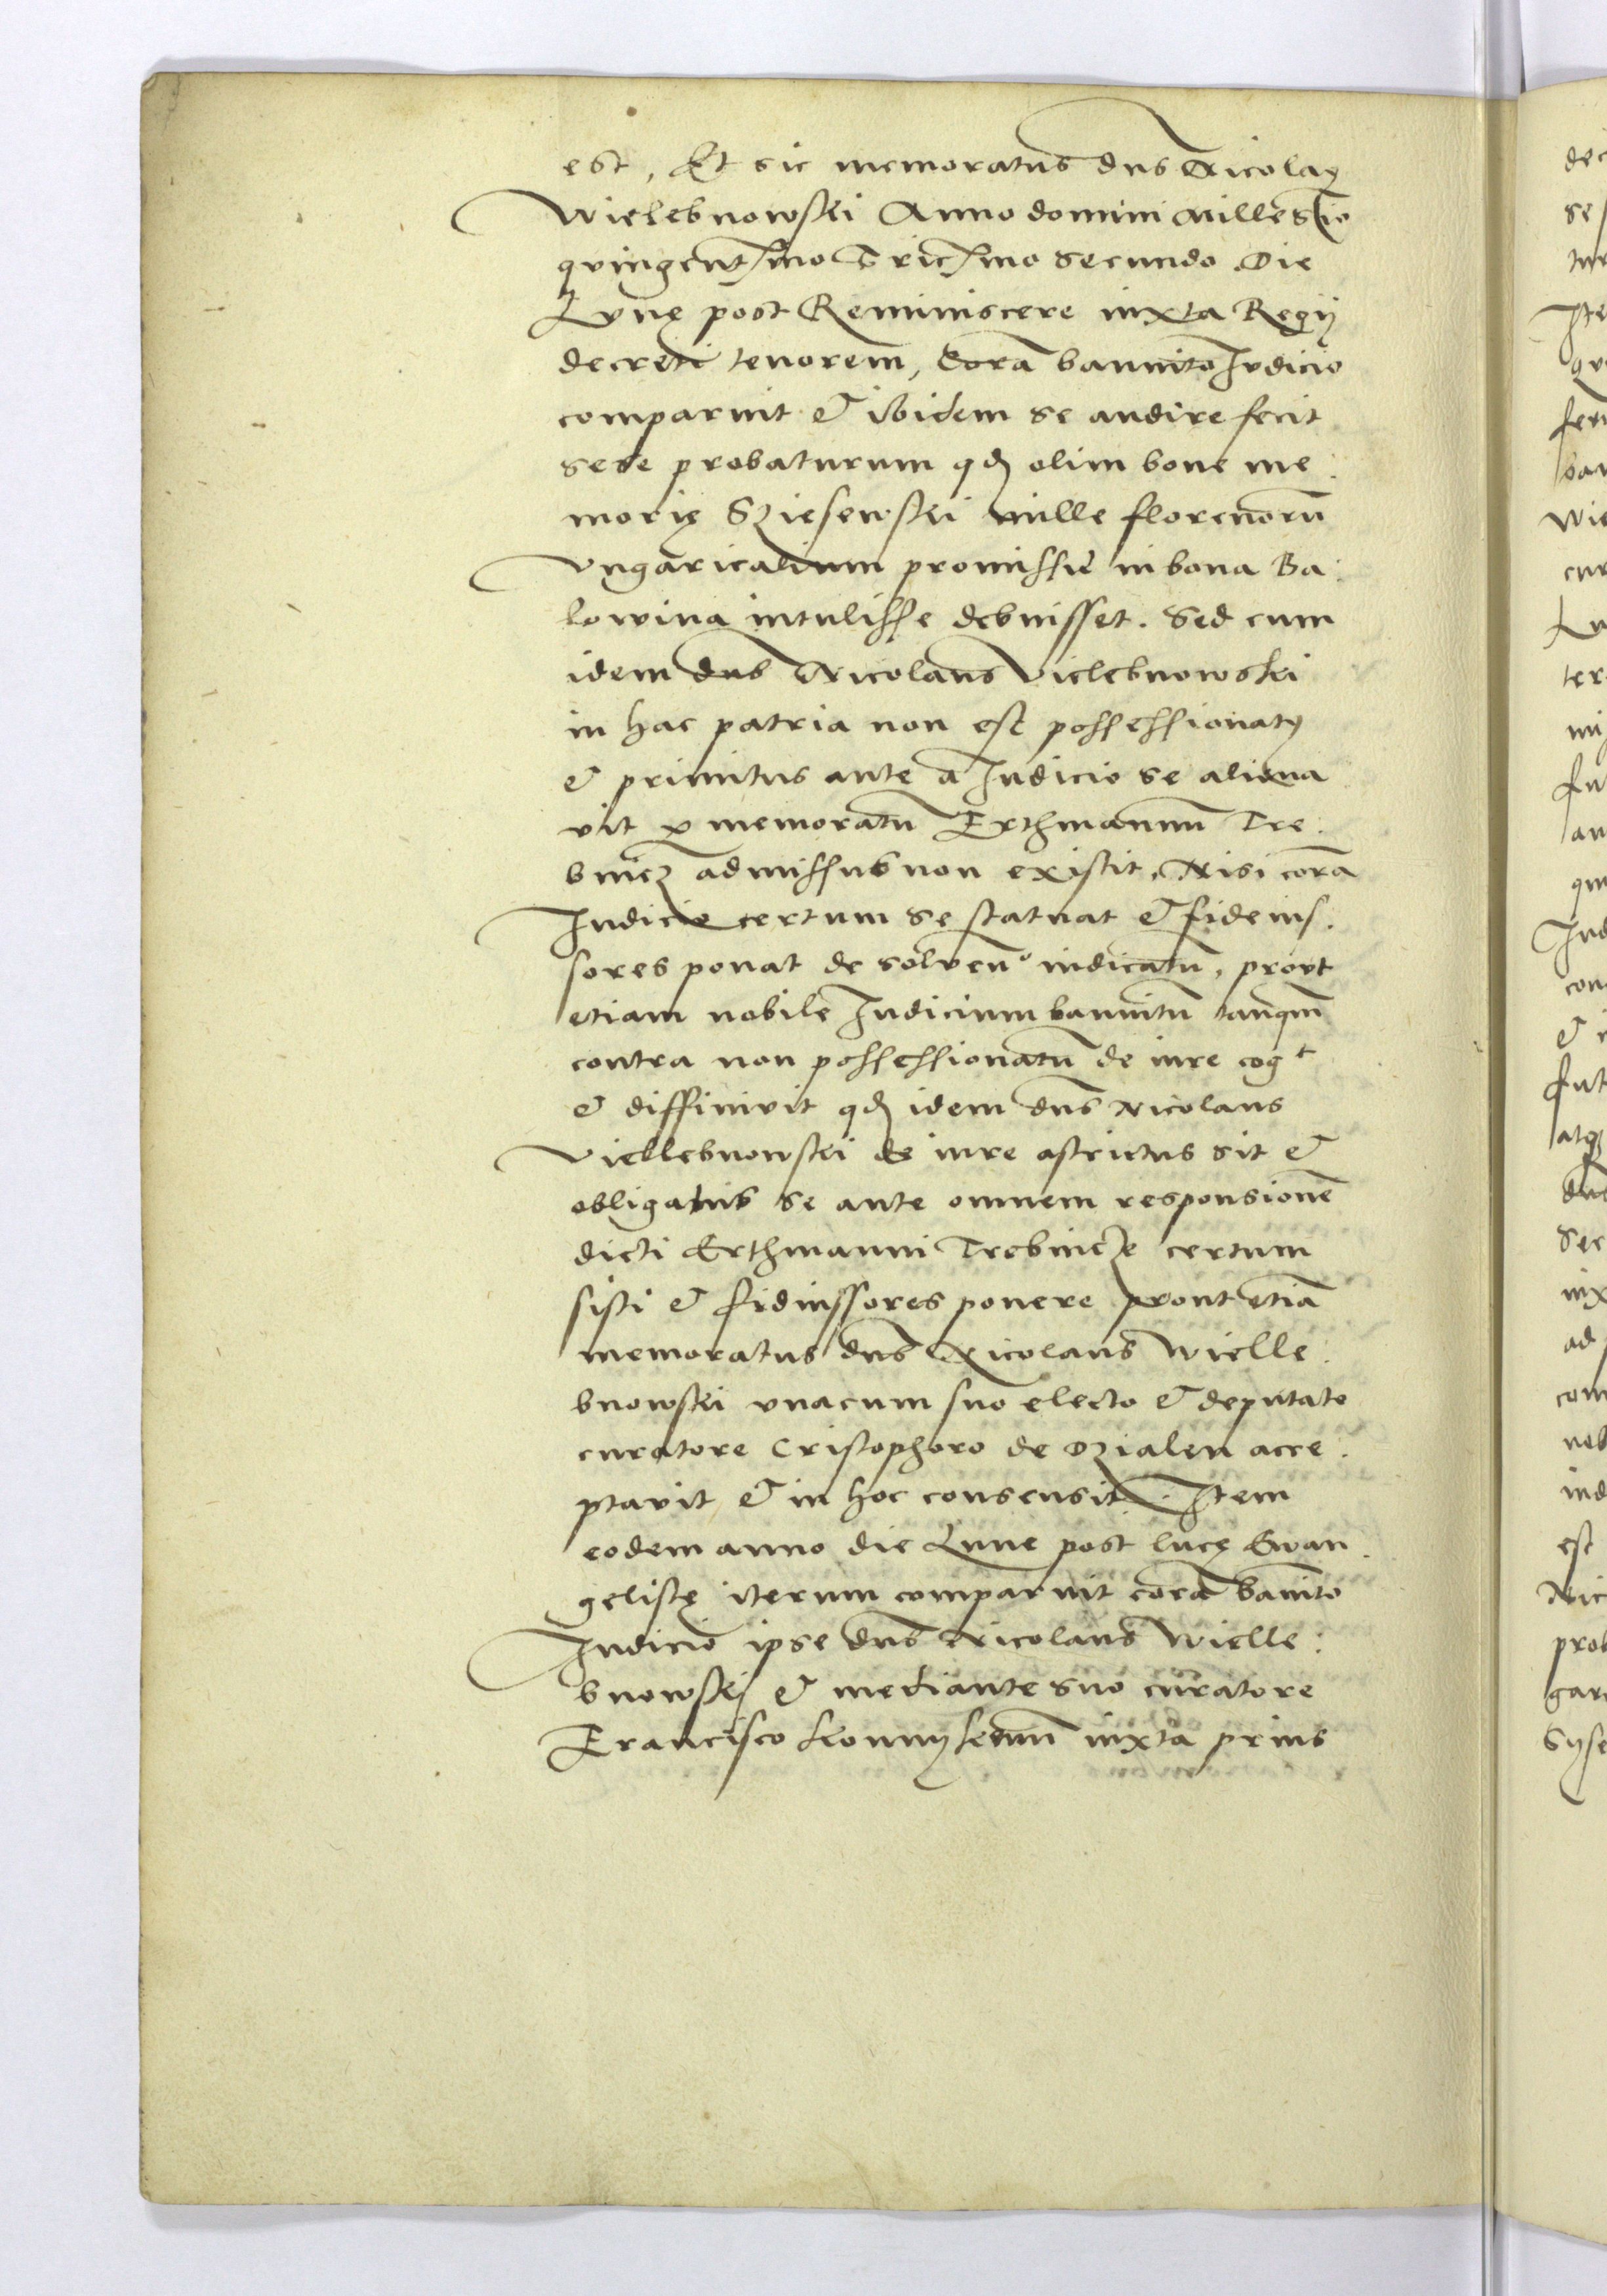 est, Et sic memoratus dns Nicolaꝰ
Wielebnowski Anno domini Milles(io
quingentꝭimo Tricꝭimo secundo Die
Lunę post Reminiscere iuxta Regij
decreti tenorem, Corã bannito Judicio
comparuit & ibidem se audire fecit
sese probaturum qđ olim bone me:
morię Sziesenski mille florenorũ
Vngaricalium promissũ in bona Ba:
lowina intulisse debuisset. Sed cum
idem dns Nicolaus Vielebnowski
in hac patria non est possessionatꝰ
& primitus ante a Judicio se aliena
vit p memoratũ Erthmannũ Tre:
bnicz admissus non existit, Nisi corã
Judicio certum se statuat & fideius:
sores ponat de solvenº iudicatũ, prout
etiam nobile Judicium bannitũ tanqm̃
contra non possessionatũ de iure cogt
& diffinivit qđ idem dns Nicolaus
Viellebnowski de iure astrictus sit &
obligatus se ante omnem responsionẽ
dicti Erthmanni Trebnicze certum
sisti & fidiussores ponere prout etiã
memoratus dns Nicolaus Wielle:
bnowski vnacum suo electo & deputato
curatore Cristophoro de Dzialen acce:
ptavit & in hoc consensit. Item
eodem anno die Lune post lucę Evan:
gelistę iterum comparuit corã banito
Judicio ipse dns Nicolaus Wielle:
bnowskj & mediante suo curatore
Francisco iuxta prius
dec
se
Ite
qu
ban
Wie
cur
Lu
ter
mi
fu
an
qui
Jud
con
& i
fut
atqꝫ
dns
Sec
iux
ad
com
nob
ind
est
Nic
prob
gar
Syse